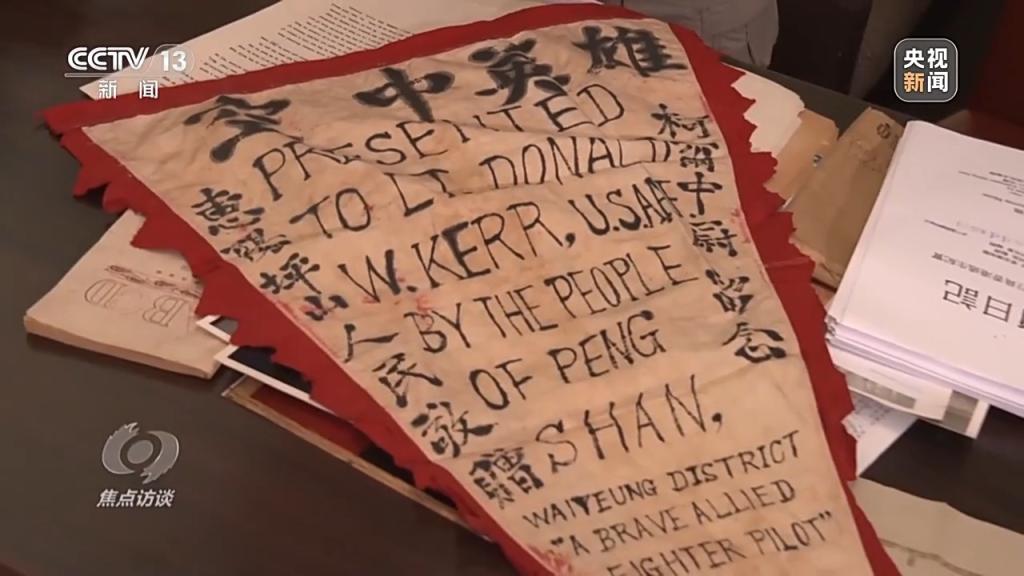 CCTV 13
新闻
央视
新闻
空中英雄
柯爾中尉留念
PRESENTED
TO LT DONALD
W. KERR, U.S.AAF
BY THE PEOPLE
OF PENG
SHAN,
WAIYEUNG DISTRICT
"A BRAVE ALLIED
FIGHTER PILOT"
惠陽坪山人民敬贈
日記
焦点访谈